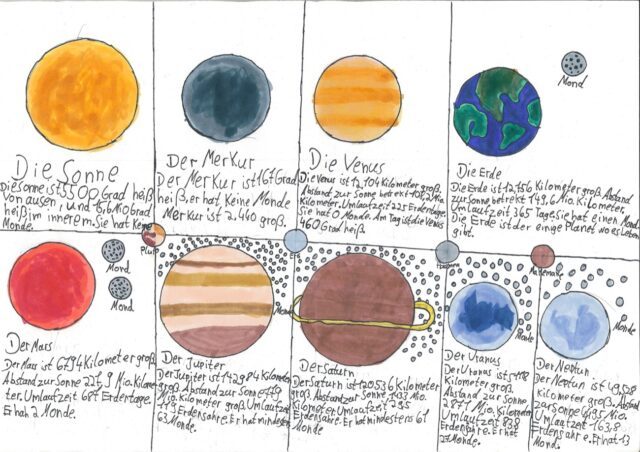 Die Sonne
Die Sonne ist 5500 Grad heiß
von ausen, und 15,6 Mio Grad
heiß im innerem. Sie hat keine
Monde.
Der Merkur
Der Merkur ist 167 Grad
heiß. er hat keine Monde
Merkur ist 2.440 groß.
Die Venus
Die Venus ist 12,104 Kilometer groß.
Abstand zur Sonne betrekt 108,2 Mio
Kilometer. Umlaufzeit 225 Erdentage.
Sie hat 0 Monde. Am Tag ist die Venus
460 Grad heiß.
Mond
Die Erde
Die Erde ist 12,756 Kilometer groß. Abstand
zur Sonne betrekt 149,6 Mio. Kilometer.
Umlaufzeit 365 Tage. Sie hat einen Mond.
Die Erde ist der einge Planet wo es Leben
gibt.
Pluto
Mond
Mond
Der Mars
Der Mars ist 6794 Kilometer groß.
Abstand zur Sonne 227,9 Mio. Kilome-
ter. Umlaufzeit 687 Erdertage.
Er hat 2 Monde.
Monde
Der Jupiter
Der Jupiter ist 142984 Kilometer
groß. Abstand zur Sonne 779
Mio. Kilometer groß. Umlaufzeit
11,9 Erdensahre. Er hat mindesten
63 Monde.
Der Saturn
Der Saturn ist 120536 Kilometer
groß. Abstand zur Sonne 1433 Mio.
Kilometer Umlaufzeit 29,5
Erdensahre. Er hat mindestens 61
Monde.
Monde
Der Uranus
Der Uranus ist 51118
Kilometer groß.
Abstand zur Sonne
2871 Mio. Kilometer
Umlaufzeit 838
Erdensahre. Er hat
27 Monde.
Makemake
Monde
Der Neptun
Der Neptun ist 49,528
Kilometer groß. Abstand
zur Sonne 4495 Mio.
Umlaufzeit 163,8
Erdensahre. Er hat 13
Mond.